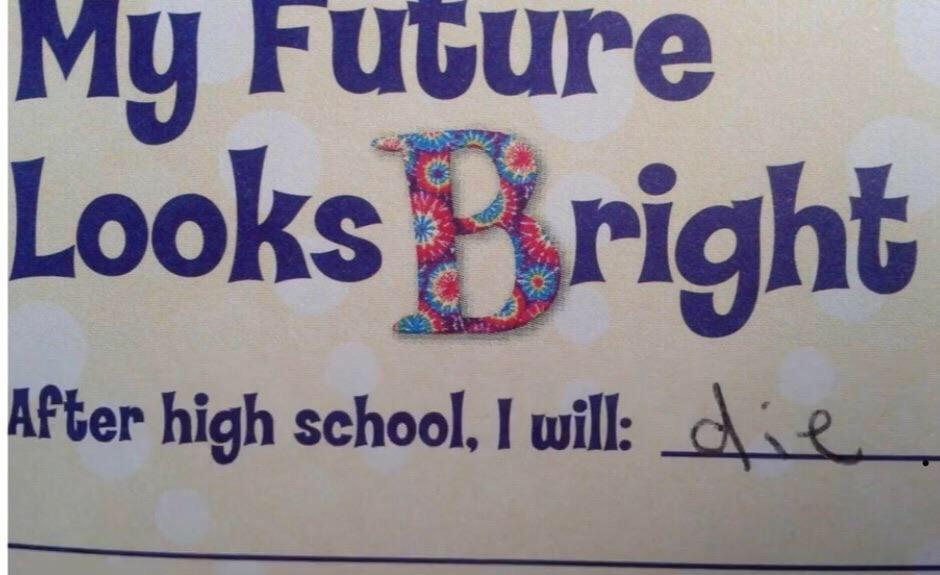 My Future
Looks Bright
After high school, I will: die